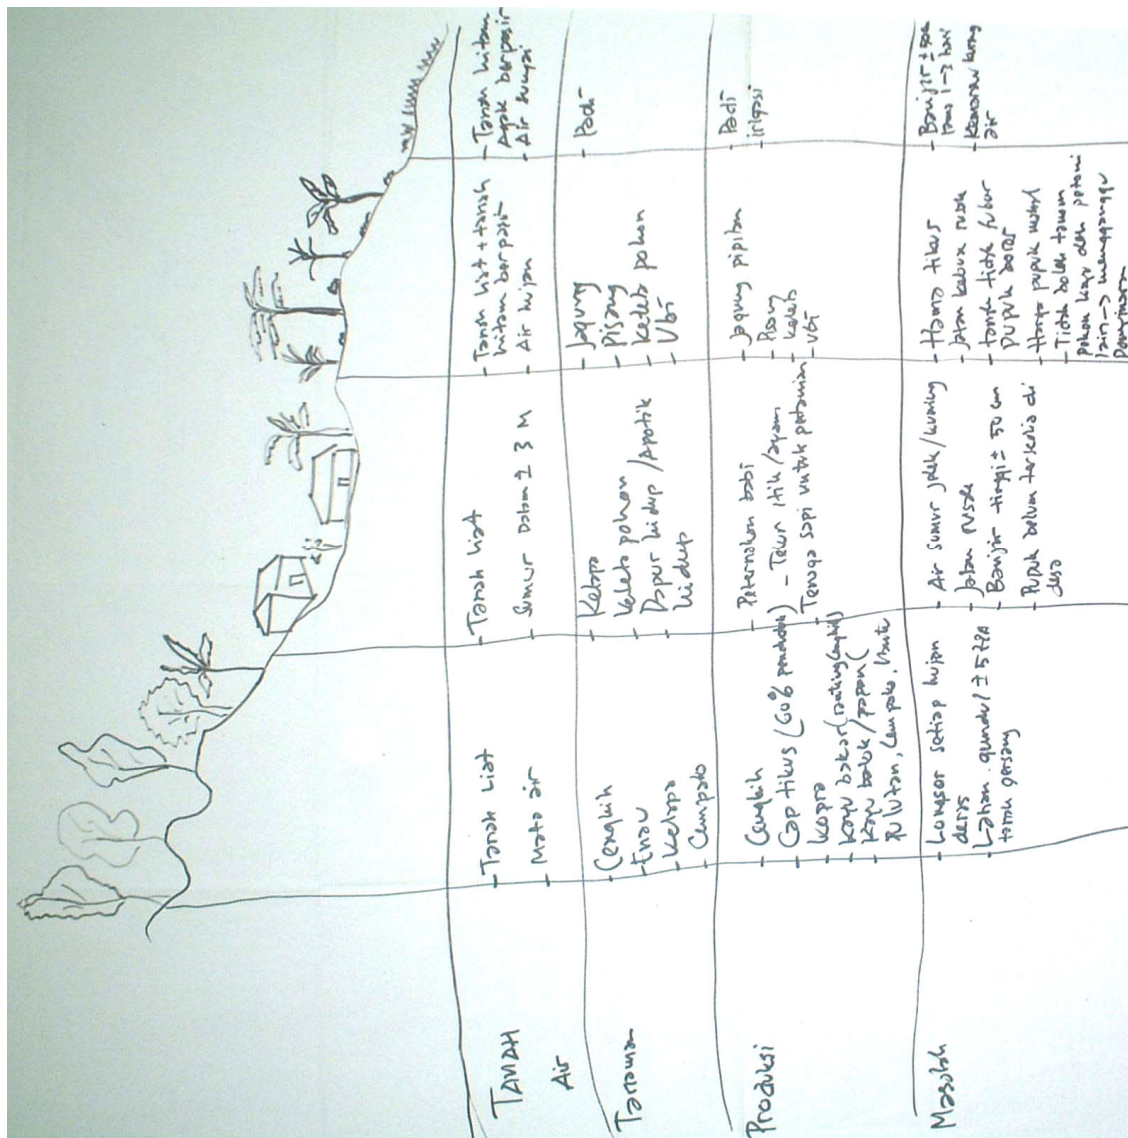 TANAH
Air
- Tanah Liat
- Mata air
- Tanah liat
- Sumur Dalam ± 3 M
- Tanah liat + tanah
hitam berpasir
- Air hujan
- Tanah hitam
Agak berpasir
- Air sungai
Tanaman
- Cengkih
- Enau
- Kelapa
- Cempaka
- Kelapa
- Ketela pohon
- Dapur hidup / Apotik
hidup
- Jagung
- Pisang
- Ketela pohon
- Ubi
- Padi
Produksi
- Cengkih
- Cap tikus (60% penduduk)
- Kopra
- Kayu bakar (ranting cengkih)
- Kayu balok / papan (
Cempaka,
- Peternakan babi
- Telur itik / ayam
- Tenaga sapi untuk pertanian
- Jagung pipilan
- Pisang
- Ketela
- Ubi
- Padi
irigasi
Masalah
- Longsor setiap hujan
deras
- Lahan gundul ± 5
tanah gersang
- Air sumur jelek / kuning
- Jalan rusak
- Banjir tinggi ± 50 cm
- Pupuk belum tersedia di
desa
- Hama tikus
- Jalan kebun rusak
- tanah tidak subur
pupuk boros
- Harga pupuk mahal
- Tidak boleh tanam
pohon kayu oleh petani
lain -> mengganggu
- Banjir ± 50 cm
1-3 hari
- Kemarau kurang
air